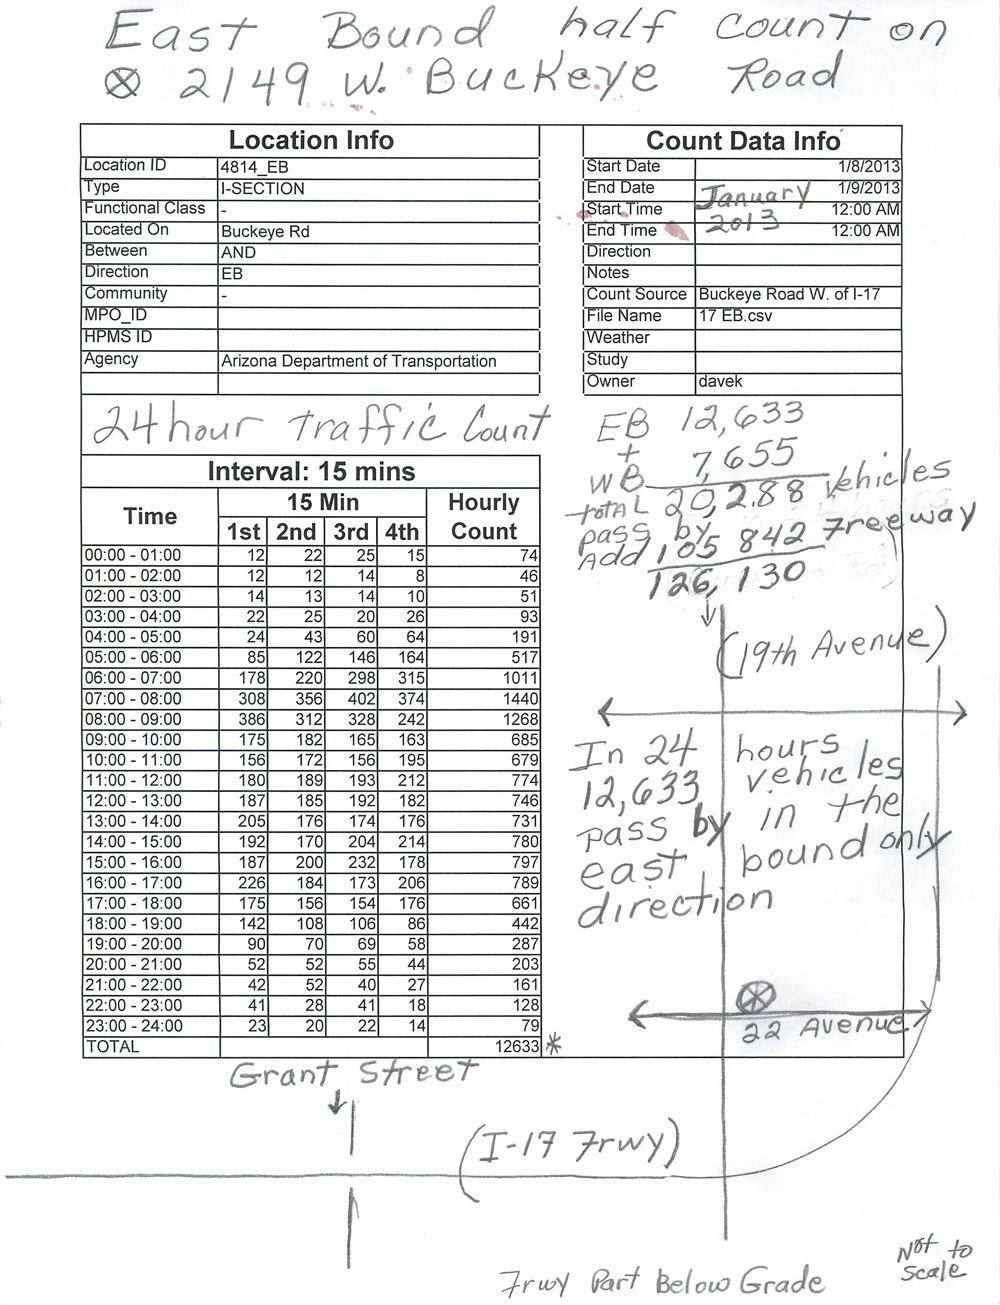 East Bound half count on
2149 W. Buckeye Road
Location Info
Location ID 4814_EB
Type I-SECTION
Functional Class -
Located On Buckeye Rd
Between AND
Direction EB
Community -
MPO_ID
HPMS ID
Agency Arizona Department of Transportation
Count Data Info
Start Date 1/8/2013
End Date 1/9/2013
Start Time 12:00 AM
End Time 12:00 AM
January
2013
Direction
Notes
Count Source Buckeye Road W. of I-17
File Name 17 EB.csv
Weather
Study
Owner davek
24 hour traffic Count
EB 12,633
+
WB 7,655
total 20,288 vehicles
pass by
Add 105 842 Freeway
126,130
Interval: 15 mins
Time 15 Min Hourly Count
1st 2nd 3rd 4th
00:00 - 01:00 12 22 25 15 74
01:00 - 02:00 12 12 14 8 46
02:00 - 03:00 14 13 14 10 51
03:00 - 04:00 22 25 20 26 93
04:00 - 05:00 24 43 60 64 191
05:00 - 06:00 85 122 146 164 517
06:00 - 07:00 178 220 298 315 1011
07:00 - 08:00 308 356 402 374 1440
08:00 - 09:00 386 312 328 242 1268
09:00 - 10:00 175 182 165 163 685
10:00 - 11:00 156 172 156 195 679
11:00 - 12:00 180 189 193 212 774
12:00 - 13:00 187 185 192 182 746
13:00 - 14:00 205 176 174 176 731
14:00 - 15:00 192 170 204 214 780
15:00 - 16:00 187 200 232 178 797
16:00 - 17:00 226 184 173 206 789
17:00 - 18:00 175 156 154 176 661
18:00 - 19:00 142 108 106 86 442
19:00 - 20:00 90 70 69 58 287
20:00 - 21:00 52 52 55 44 203
21:00 - 22:00 42 52 40 27 161
22:00 - 23:00 41 28 41 18 128
23:00 - 24:00 23 20 22 14 79
TOTAL 12633 *
(19th Avenue)
In 24 hours
12,633 vehicles
pass by in the
east bound only
direction
22 Avenue
Grant Street
(I-17 Frwy)
Not to
scale
Frwy Part Below Grade